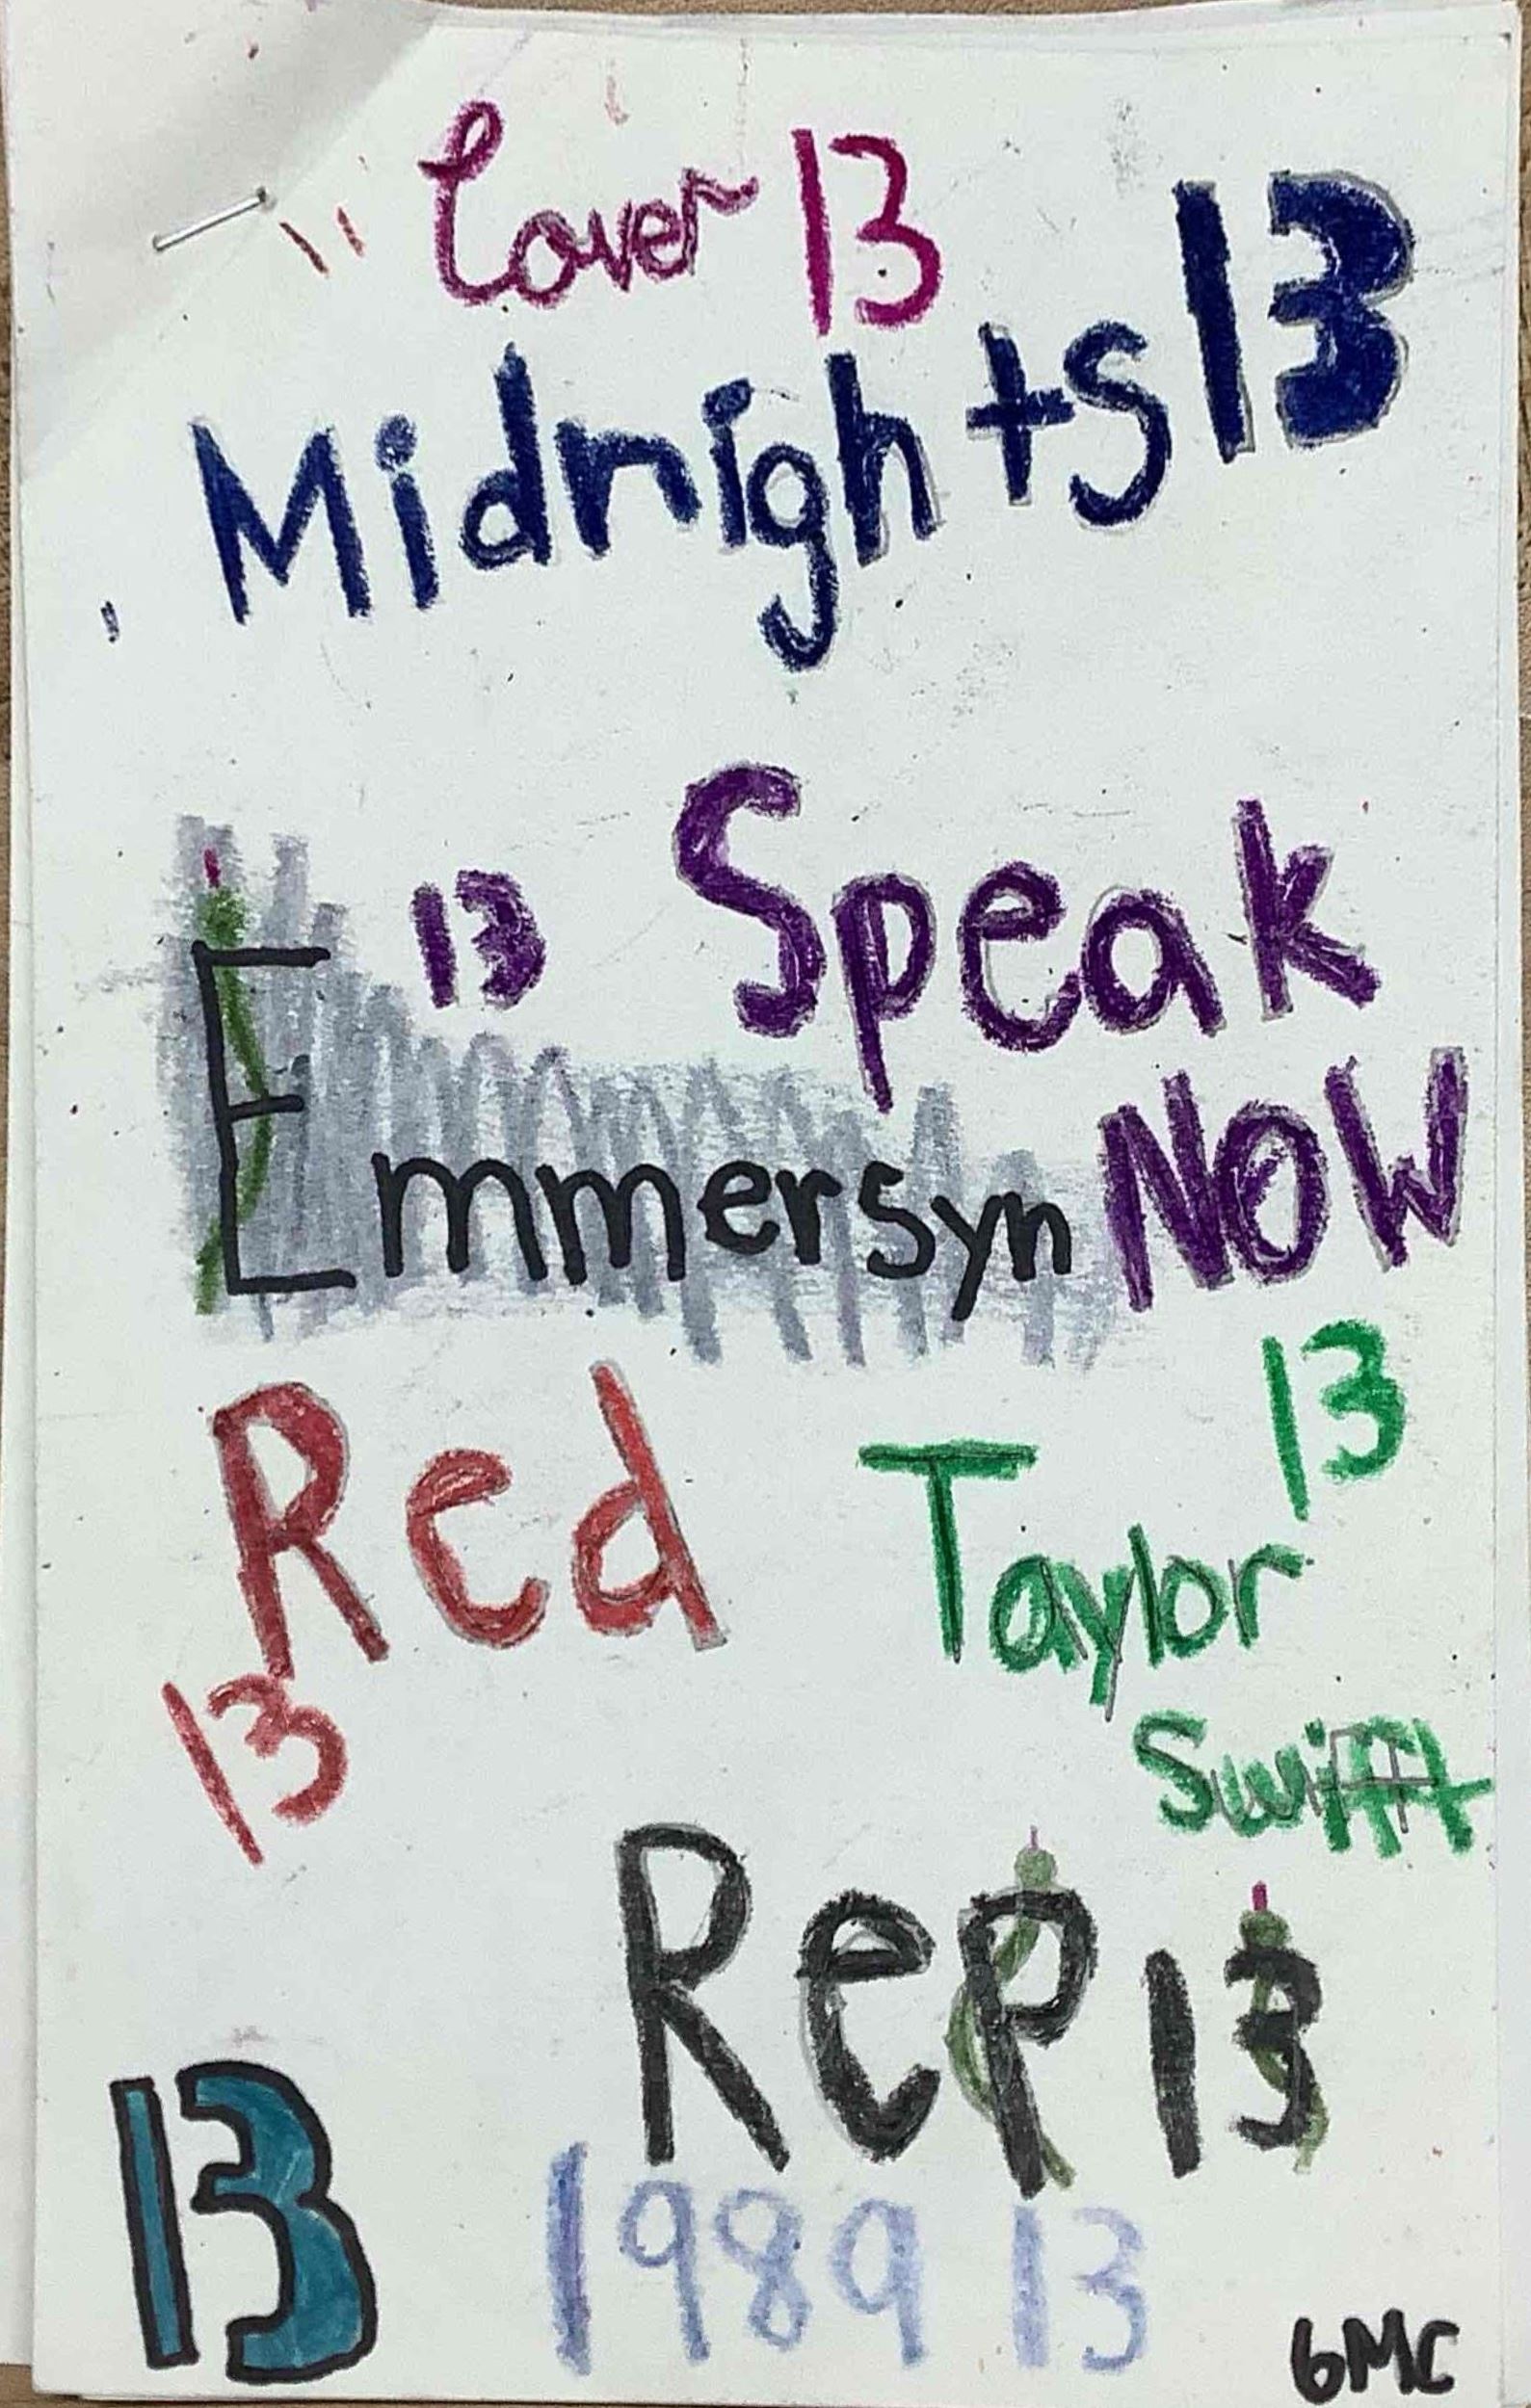 Lover 13
Midnights 13
13 Speak
Emmersyn NOW
Red
13
Taylor
Swift
13
Rep 13
13
1989 13
6MC